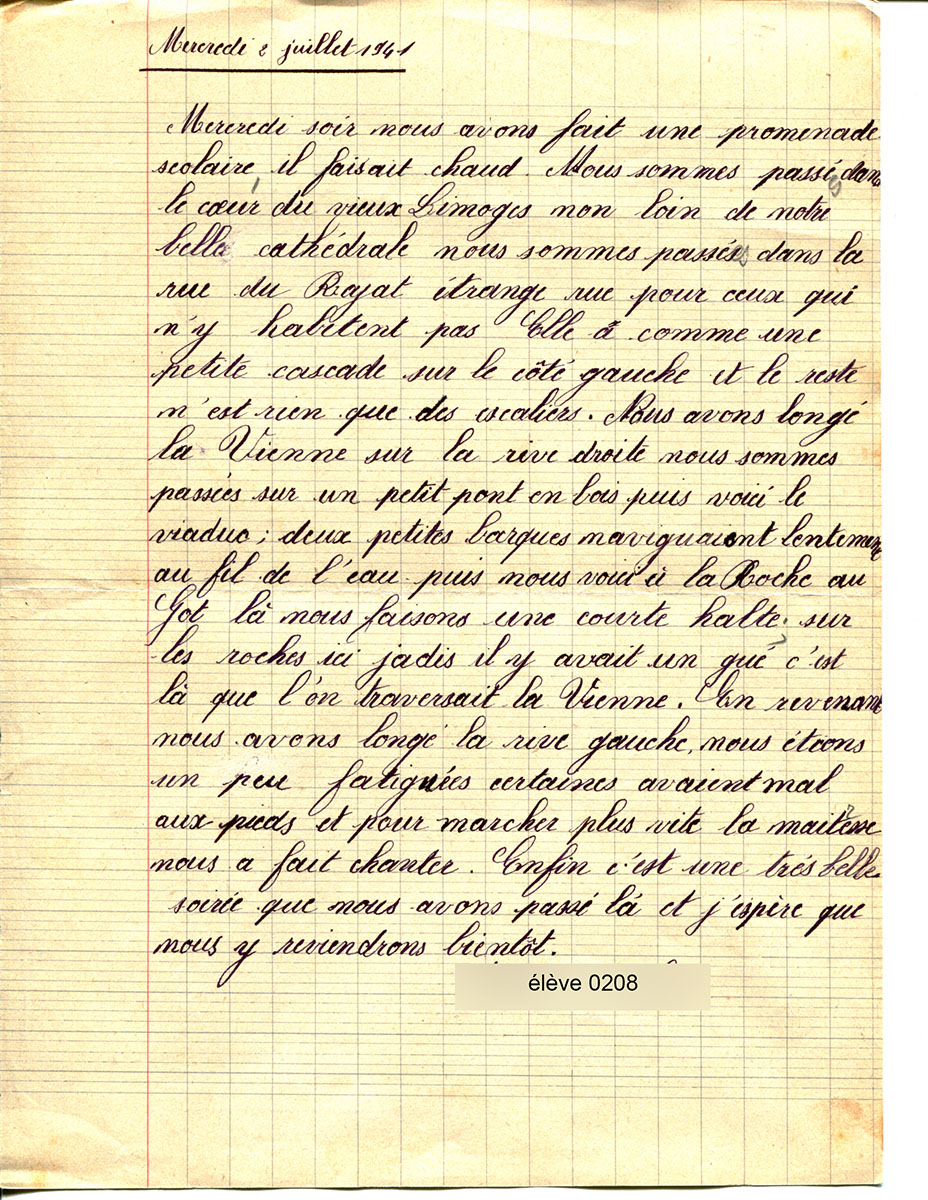 Mercredi 2 juillet 1941
Mercredi soir nous avons fait une promenade
scolaire, il faisait chaud. Nous sommes passées dans
le cœur du vieux Limoges non loin de notre
belle cathédrale nous sommes passées dans la
rue du Rajat étrange rue pour ceux qui
n'y habitent pas Elle à comme une
petite cascade sur le côté gauche et le reste
n'est rien que des escaliers. Nous avons longé
la Vienne sur la rive droite nous sommes
passées sur un petit pont en bois puis voici le
viaduc ; deux petites barques naviguaient lentement
au fil de l'eau puis nous voici à la Roche au
Got là nous faisons une courte halte sur
les roches ici jadis il y avait un gué c'est
là que l'on traversait la Vienne. En revenant
nous avons longé la rive gauche, nous étions
un peu fatiguées certaines avaient mal
aux pieds et pour marcher plus vite la maitresse
nous a fait chanter. Enfin c'est une trés belle
soirée que nous avons passé là et j'espère que
nous y reviendrons bientôt.
élève 0208